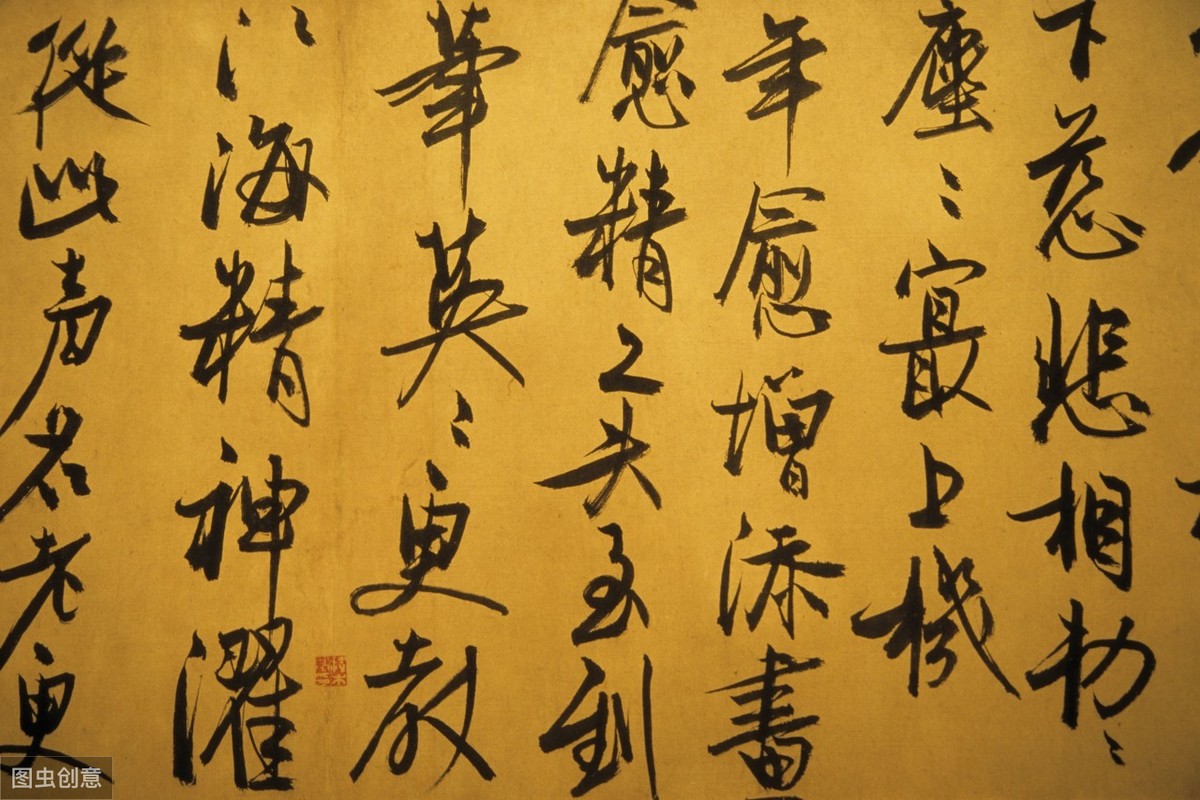 下慈悲相物々
塵々最上機
年愈增添
愈精工夫至到
華英々更教
海精神濯
從此声名老更
图虫创意